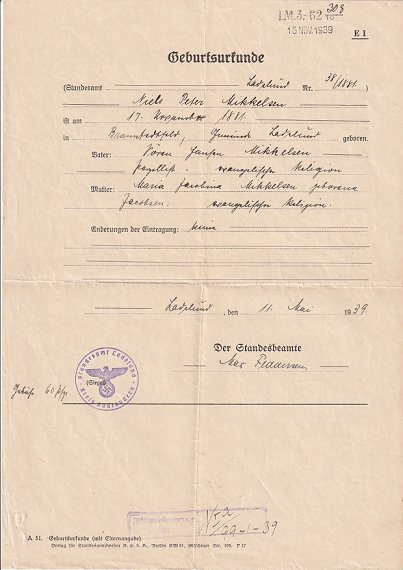 I.M.3.-62 308
16. NOV. 1939
E 1
Geburtsurkunde
(Standesamt Ladelund Nr. 38/1881
Niels Peter Mikkelsen
ist am 17. November 1881
in Bramstedtfeld, Gemeinde Ladelund geboren.
Vater: Sören Jansen Mikkelsen
evangelischer Religion
Mutter: Maria Jacolina Mikkelsen geborene
Jacobsen: evangelischer Religion.
Änderungen der Eintragung: keine
Ladelund, den 11. Mai 1939.
Der Standesbeamte
Standesamt Ladelund
Kreis Südtondern
(Siegel)
Gebühr 60 Pfg.
Nr. 2
A 51. Geburtsurkunde (mit Elternangabe)
Verlag für Standesamtswesen G. m. b. H., Berlin SW 61, Gitschiner Str. 109. F 17